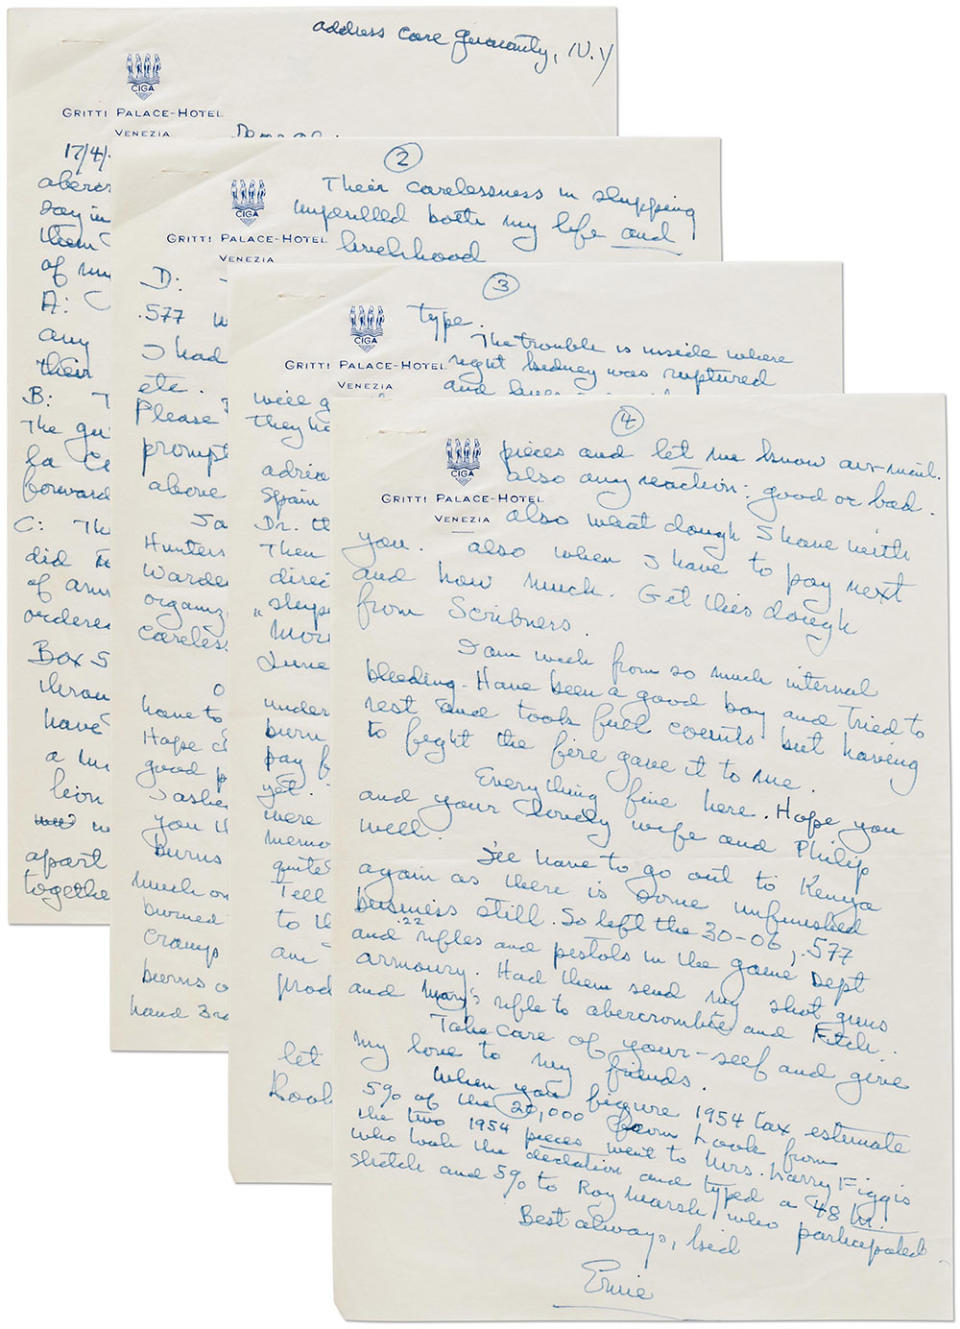 address care Guaranty, N.Y
CIGA
GRITTI PALACE-HOTEL
VENEZIA
17/4/
aberc
say in
them
of my
A:
any
their
B: T
The gu
forward
C: Th
did
of arms
ordere
Box 5
throu
have
a
lion
apart
togethe
2
CIGA
GRITTI PALACE-HOTEL
VENEZIA
Their carelessness in shipping
imperilled both my life and
livelihood
D:
.577 w
I had
etc.
Please
prompt
above
Hunters
Warde
organiz
careless
have to
Hope
good p
I asked
you
Burns
much on
burned
cramps
burns o
hand 3rd
3
CIGA
GRITTI PALACE-HOTEL
VENEZIA
type.
The trouble is inside where
right kidney was ruptured
and
were g
they he
adria
Spain
Dr.
Then
direc
"slipp
More
June
under
burn
pay f
yet.
were
memo
quite
Tell
to th
am
prod
let
Look
4
CIGA
GRITTI PALACE-HOTEL
VENEZIA
pieces and let me know air-mail.
also any reaction: good or bad.
also what dough I have with
you. also when I have to pay next
and how much. Get this dough
from Scribners.
I am weak from so much internal
bleeding. Have been a good boy and tried to
rest and took full counts but having
to fight the fire gave it to me.
Everything fine here. Hope you
and your lovely wife and Philip
well
I'll have to go out to Kenya
again as there is some unfinished
business still. So left the 30-06, .577
and .22 rifles and pistols in the game Dept
armoury. Had them send my shot guns
and Mary's rifle to abercrombie and Fitch.
Take care of your-self and give
my love to my friends.
When you figure 1954 tax estimate
5% of the 20,000 from Look from
the two 1954 pieces went to Mrs. Larry Figgis
who took the dictation and typed a 48 M.
sketch and 5% to Roy Marsh who participated
Best always, kid
Ernie